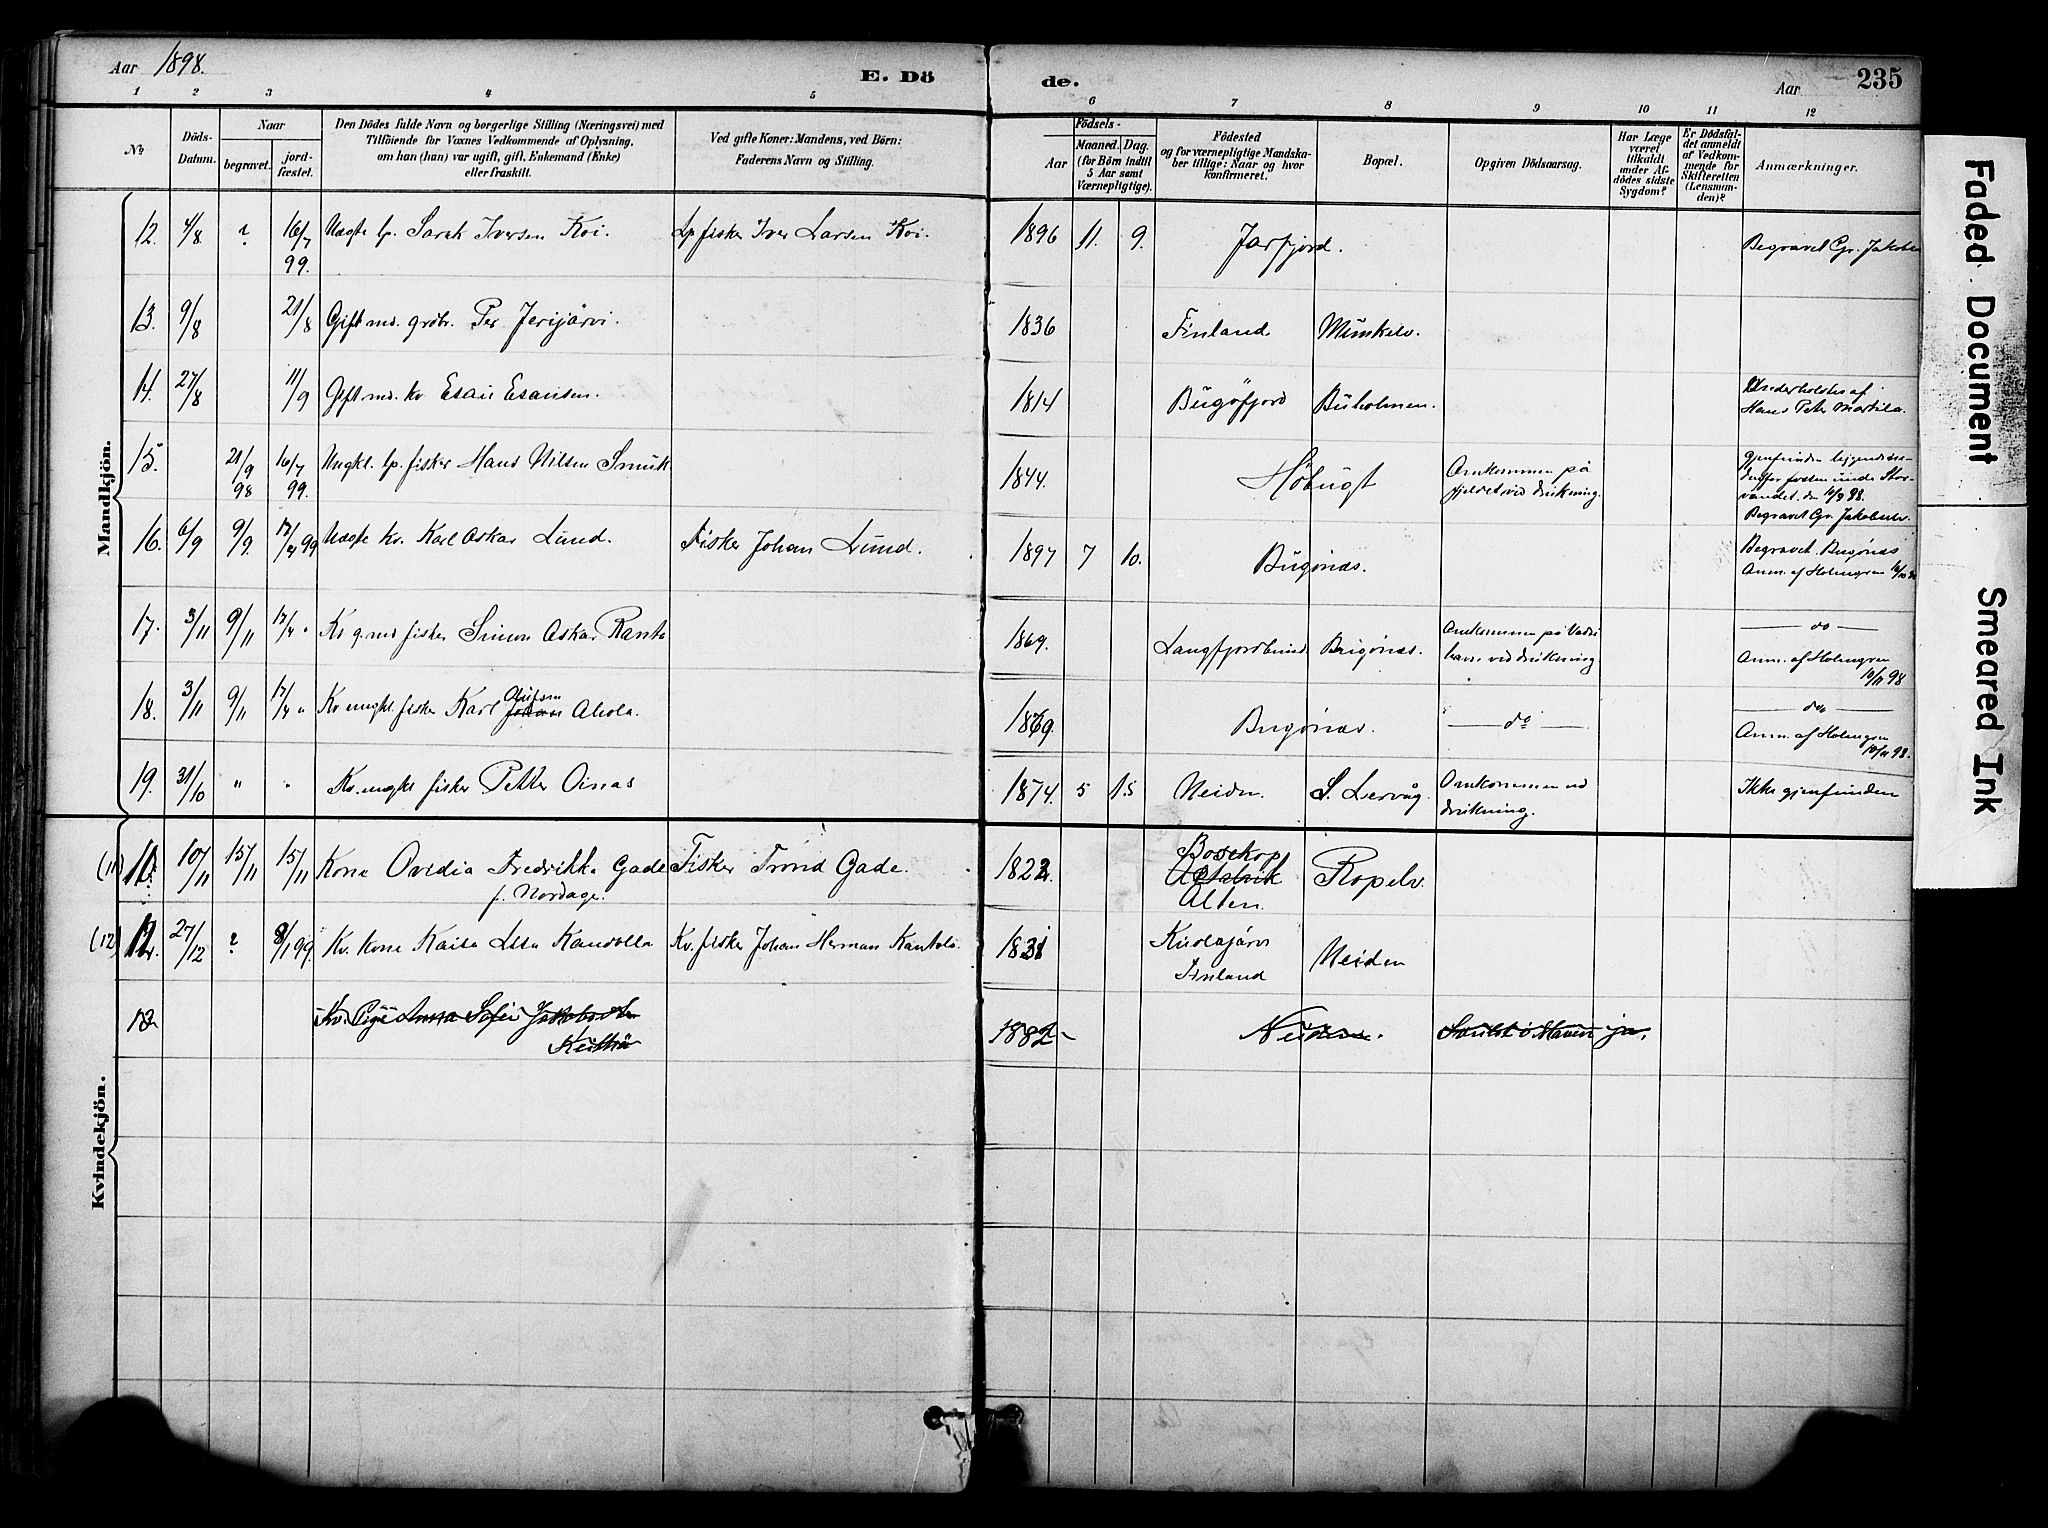 Aar 1898.
E. Dö
de.
Aar
235
1 2 3 4 5 6 7 8 9 10 11 12
No
Döds-
Datum.
Naar
begravet.
jord-
fæstet.
Den Dödes fulde Navn og borgerlige Stilling (Næringsvei) med
Tilföiende for Voxnes Vedkommende af Oplysning,
om han (hun) var ugift, gift, Enkemand (Enke)
eller fraskilt.
Ved gifte Koner: Mandens, ved Börn:
Faderens Navn og Stilling.
Födsels-
Aar
Maaned. Dag.
(for Börn indtil
5 Aar samt
Værnepligtige).
Födested
og for værnepligtige Mandska-
ber tillige: Naar og hvor
konfirmeret.
Bopæl.
Opgiven Dödsaarsag.
Har Læge
været
tilkaldt
under Af-
dödes sidste
Sygdom?
Er Dödsfal-
det anmeldt
af Vedkom-
mende for
Skifteretten
(Lensman-
den)?
Anmærkninger.
Mandkjön.
12. 4/8 ? 16/7 99. Uægte lp. Sarak Iversen Koi. Lp fisker Iver Larsen Koi. 1896 11. 9. Jarfjord. Begravet Gr. Jakobs
13. 9/8 21/8 Gift md. grdbr. Per Jerijärvi. 1836 Finland Munkelv.
14. 27/8 11/9 Gift md. kv Esau Esausen. 1814 Bugöfjord Buholmen. Underholdes af
Hans Peter Martila.
15. 21/9 98 16/7 99. Ungkl. lp. fisker Hans Nilsen Smuk 1844. Höbugt Omkommen på
fjeldet ved drukning. gjenfunden liggende
vandet den 10/9 98.
Begravet Gr. Jakobselv.
16. 6/9 9/9. 17/4 99 Uægte kv. Karl Oskar Lund. Fisker Johan Lund. 1897 7 10. Bugönæs. Begravet Bugönæs
Anm. af Holmgren
17. 3/11 9/11 17/4 " Kv g.md fisker Simon Oskar Ranta 1869. Langfjordbund Bugönæs. Omkommen på
havn ved drukning — do —
Anm. af Holmgren
10/11 98
18. 3/11 9/11 17/4 " Kv ungkl. fisker Karl Olufsen Johan Ahola. 1869. Bugönæs. — do — — do —
Anm. af Holmgren
10/11 98.
19. 31/10 " " Kv. ungkl fisker Petter Oinas 1874. 5 15 Neiden. S. Lervåg. Omkommen ved
drukning. Ikke gjenfunden
Kvindekjön.
(11) 11. 10/11 15/11 15/11 Kone Ovidia Fredrikka Gade
f. Nordage. Fisker Trond Gade. 1822. Bosekop
Alten. Ropelv.
(12) 12. 27/12 ? 8/1 99. Kv. kone Kaisa Lisa Kandolla Kv. fisker Johan Herman Kantola. 1831 Kuolajärvi
Finland Neiden
13 Kv. Pige Anna Sofie Jakobsdtr 1882 Neiden. ja.
Faded Document
Smeared Ink